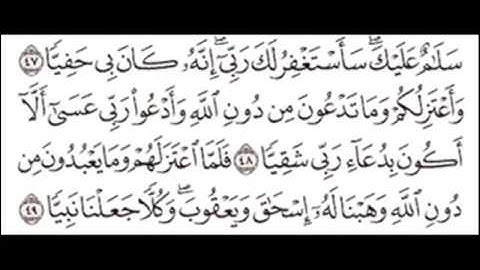 سَلَٰمٌ عَلَيْكَۖ سَأَسْتَغْفِرُ لَكَ رَبِّيٓۖ إِنَّهُۥ كَانَ بِي حَفِيّٗا ٤٧
وَأَعْتَزِلُكُمْ وَمَا تَدْعُونَ مِن دُونِ ٱللَّهِ وَأَدْعُواْ رَبِّي عَسَىٰٓ أَلَّآ
أَكُونَ بِدُعَآءِ رَبِّي شَقِيّٗا ٤٨ فَلَمَّا ٱعْتَزَلَهُمْ وَمَا يَعْبُدُونَ مِن
دُونِ ٱللَّهِ وَهَبْنَا لَهُۥٓ إِسْحَٰقَ وَيَعْقُوبَۖ وَكُلّٗا جَعَلْنَا نَبِيّٗا ٤٩